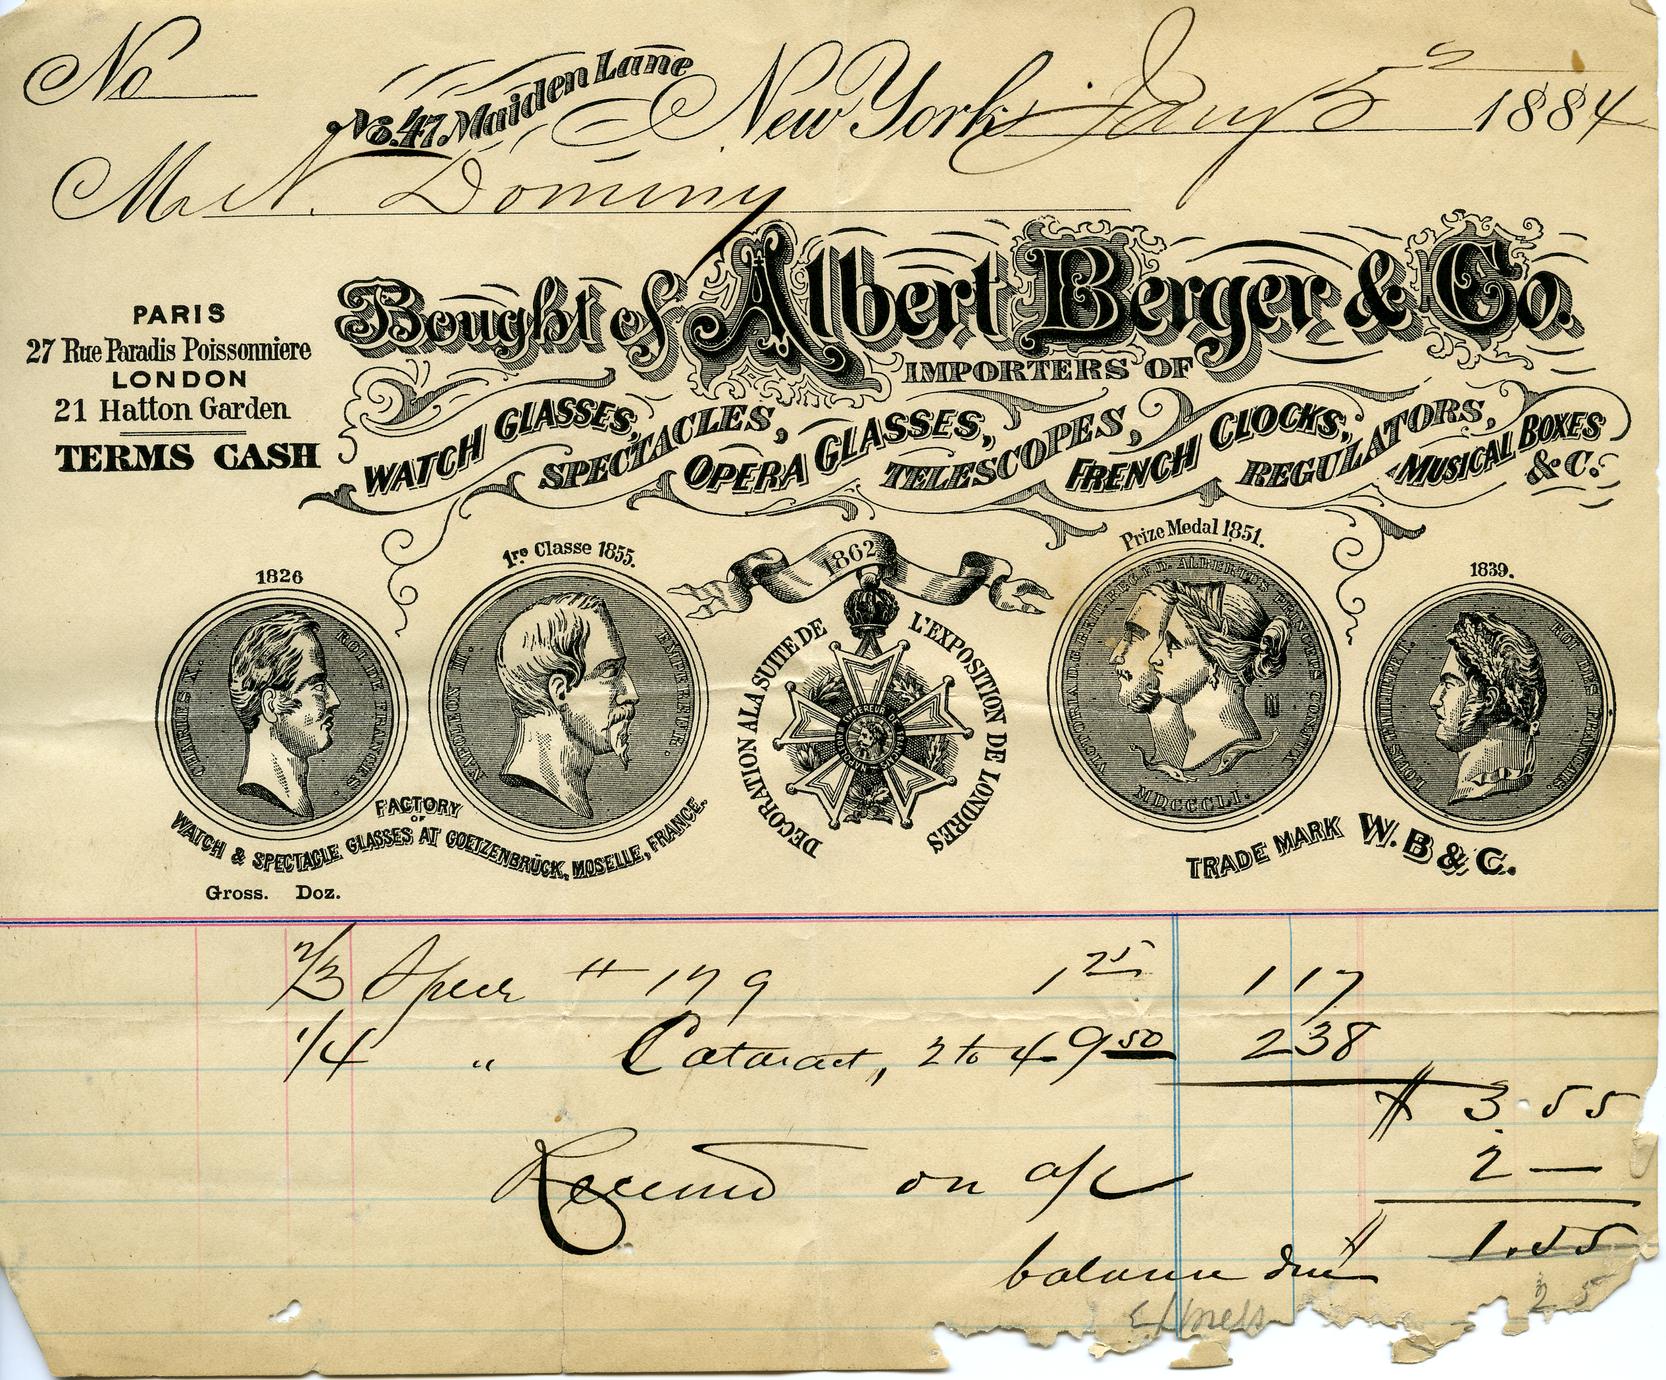 No
No. 47. Maiden Lane
New York Jany 5th 1884
Mr N. Dominy
Bought of Albert Berger & Co.
IMPORTERS OF
PARIS
27 Rue Paradis Poissonniere
LONDON
21 Hatton Garden
TERMS CASH
WATCH GLASSES, SPECTACLES, OPERA GLASSES, TELESCOPES, FRENCH CLOCKS, REGULATORS, MUSICAL BOXES &C.
1826
CHARLES X. ROI DE FRANCE.
1re Classe 1855.
NAPOLEON III. EMPEREUR.
1862
DECORATION A LA SUITE DE L'EXPOSITION DE LONDRES
NAPOLEON EMPEREUR DES
Prize Medal 1851.
MDCCCLI.
1839.
LOUIS PHILIPPE I. ROI DES FRANÇAIS.
FACTORY
OF
WATCH & SPECTACLE GLASSES AT GOETZENBRÜCK, MOSELLE, FRANCE.
TRADE MARK W. B & C.
Gross. Doz.
2/3 Specs # 179 1 75 1 17
1/4 " Cataract, 2 to 4 9 50 2 38
$ 3.55
Received on a/c 2 —
balance due $ 1.55
Express 25